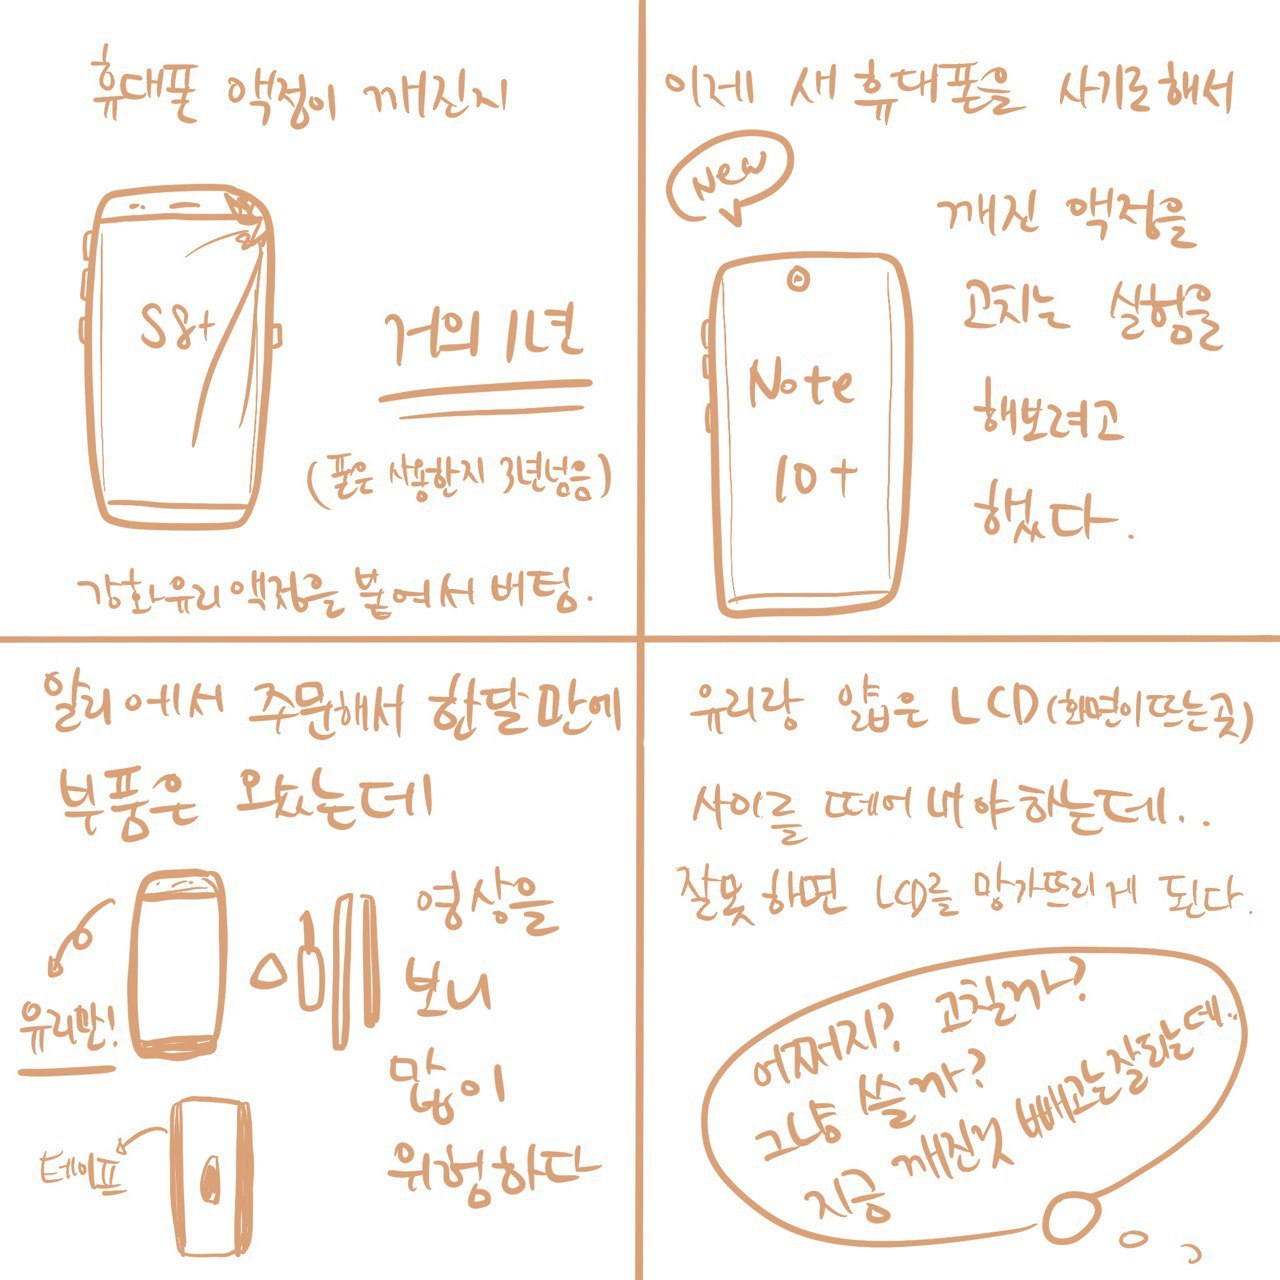 휴대폰 액정이 깨진지
S8+
거의 1년
(폰은 사용한지 3년넘음)
강화유리액정을 붙여서 버팀.
이제 새 휴대폰을 사기로해서
New
깨진 액정을
고치는 실험을
해보려고
했다.
Note
10+
알리에서 주문해서 한달만에
부품은 왔는데
영상을
보니
많이
위험하다
유리만!
테이프
유리랑 얇은 LCD(화면이뜨는곳)
사이를 떼어내야하는데..
잘못하면 LCD를 망가뜨리게 된다.
어쩌지? 고칠까?
그냥 쓸까?
지금 깨진것 빼고는잘되는데..